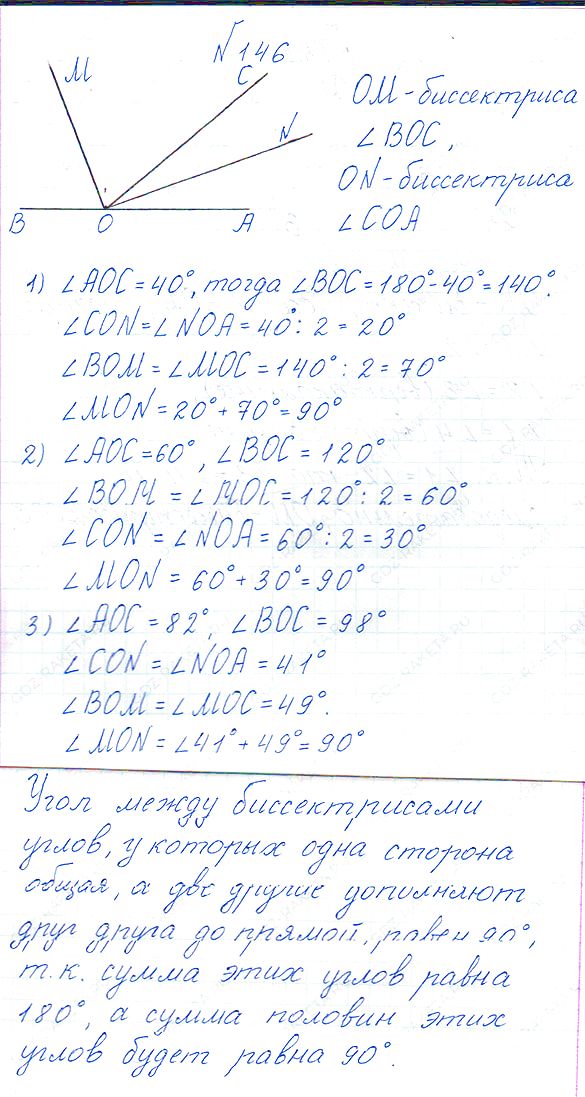 №146
M
C
N
B
O
A
OM - биссектриса
∠BOC,
ON - биссектриса
∠COA
1) ∠AOC = 40°, тогда ∠BOC = 180° - 40° = 140°.
∠CON = ∠NOA = 40° : 2 = 20°
∠BOM = ∠MOC = 140° : 2 = 70°
∠MON = 20° + 70° = 90°
2) ∠AOC = 60°, ∠BOC = 120°
∠BOM = ∠MOC = 120° : 2 = 60°
∠CON = ∠NOA = 60° : 2 = 30°
∠MON = 60° + 30° = 90°
3) ∠AOC = 82°, ∠BOC = 98°
∠CON = ∠NOA = 41°
∠BOM = ∠MOC = 49°.
∠MON = ∠41° + 49° = 90°
Угол между биссектрисами
углов, у которых одна сторона
общая, а две другие дополняют
друг друга до прямой, равен 90°,
т.к. сумма этих углов равна
180°, а сумма половин этих
углов будет равна 90°.